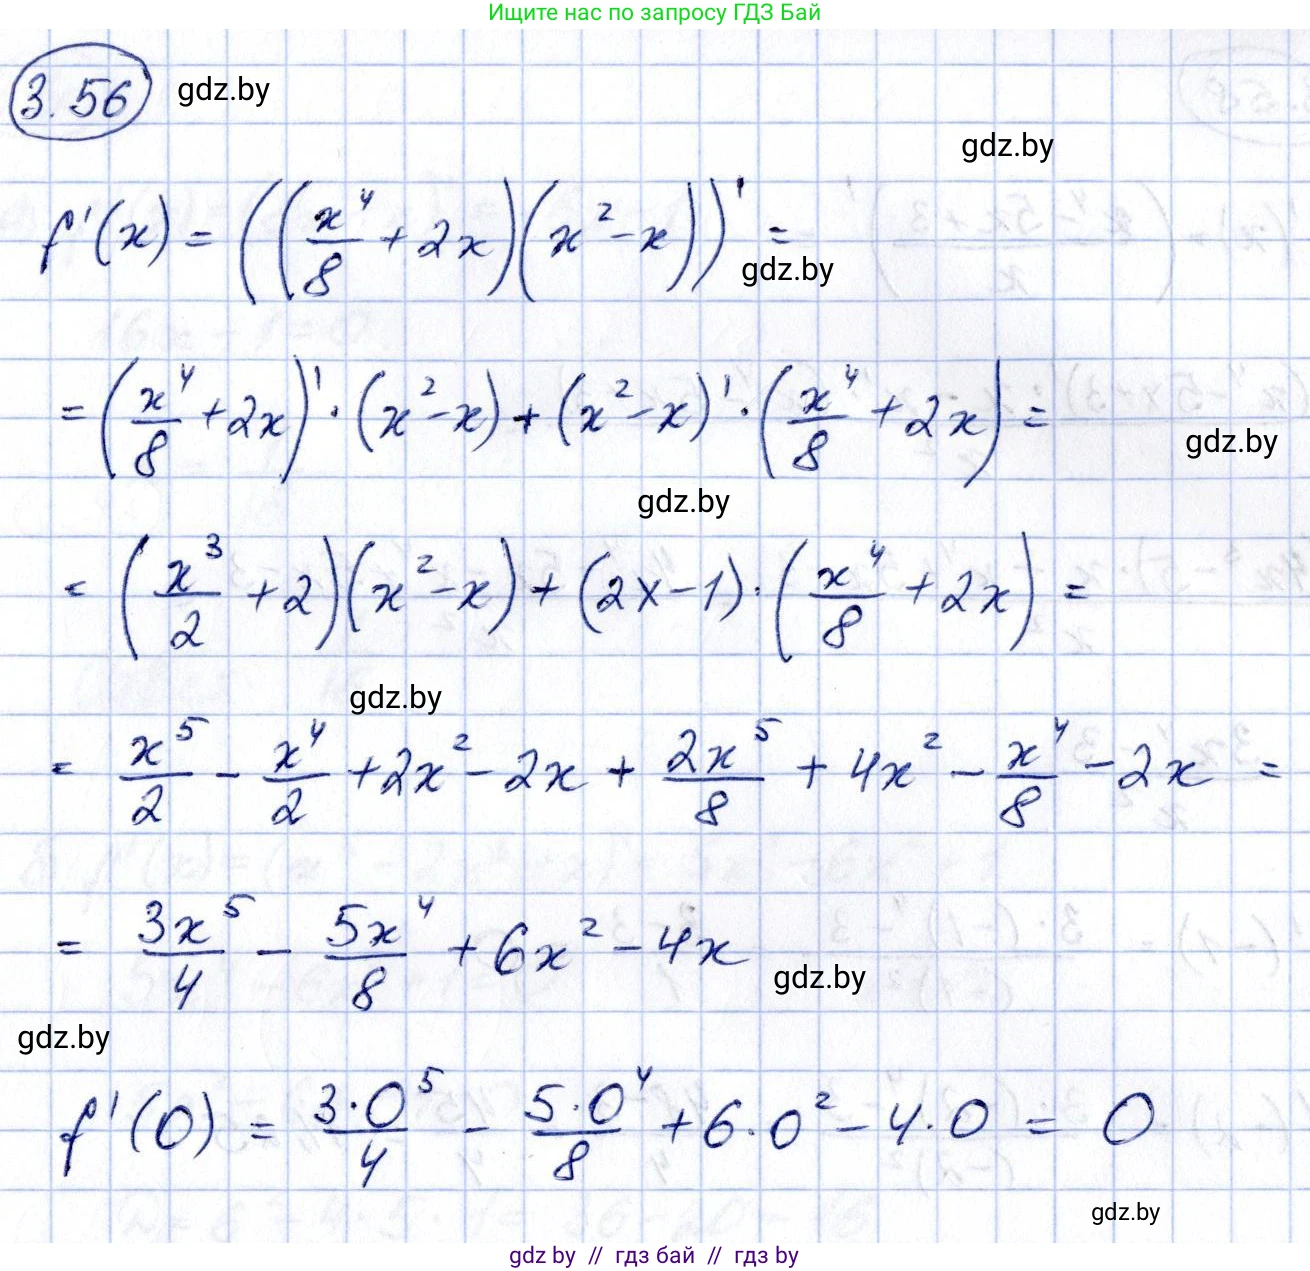 Ищите нас по запросу ГДЗ Бай
3.56 gdz.by
gdz.by
f'(x) = ((x⁴/8 + 2x)(x² - x))' =
gdz.by
= (x⁴/8 + 2x)' · (x² - x) + (x² - x)' · (x⁴/8 + 2x) =
gdz.by
gdz.by
= (x³/2 + 2)(x² - x) + (2x - 1) · (x⁴/8 + 2x) =
gdz.by
= x⁵/2 - x⁴/2 + 2x² - 2x + 2x⁵/8 + 4x² - x⁴/8 - 2x =
= 3x⁵/4 - 5x⁴/8 + 6x² - 4x
gdz.by
gdz.by
f'(0) = 3·0⁵/4 - 5·0⁴/8 + 6·0² - 4·0 = 0
gdz.by
gdz by // гдз бай // гдз by